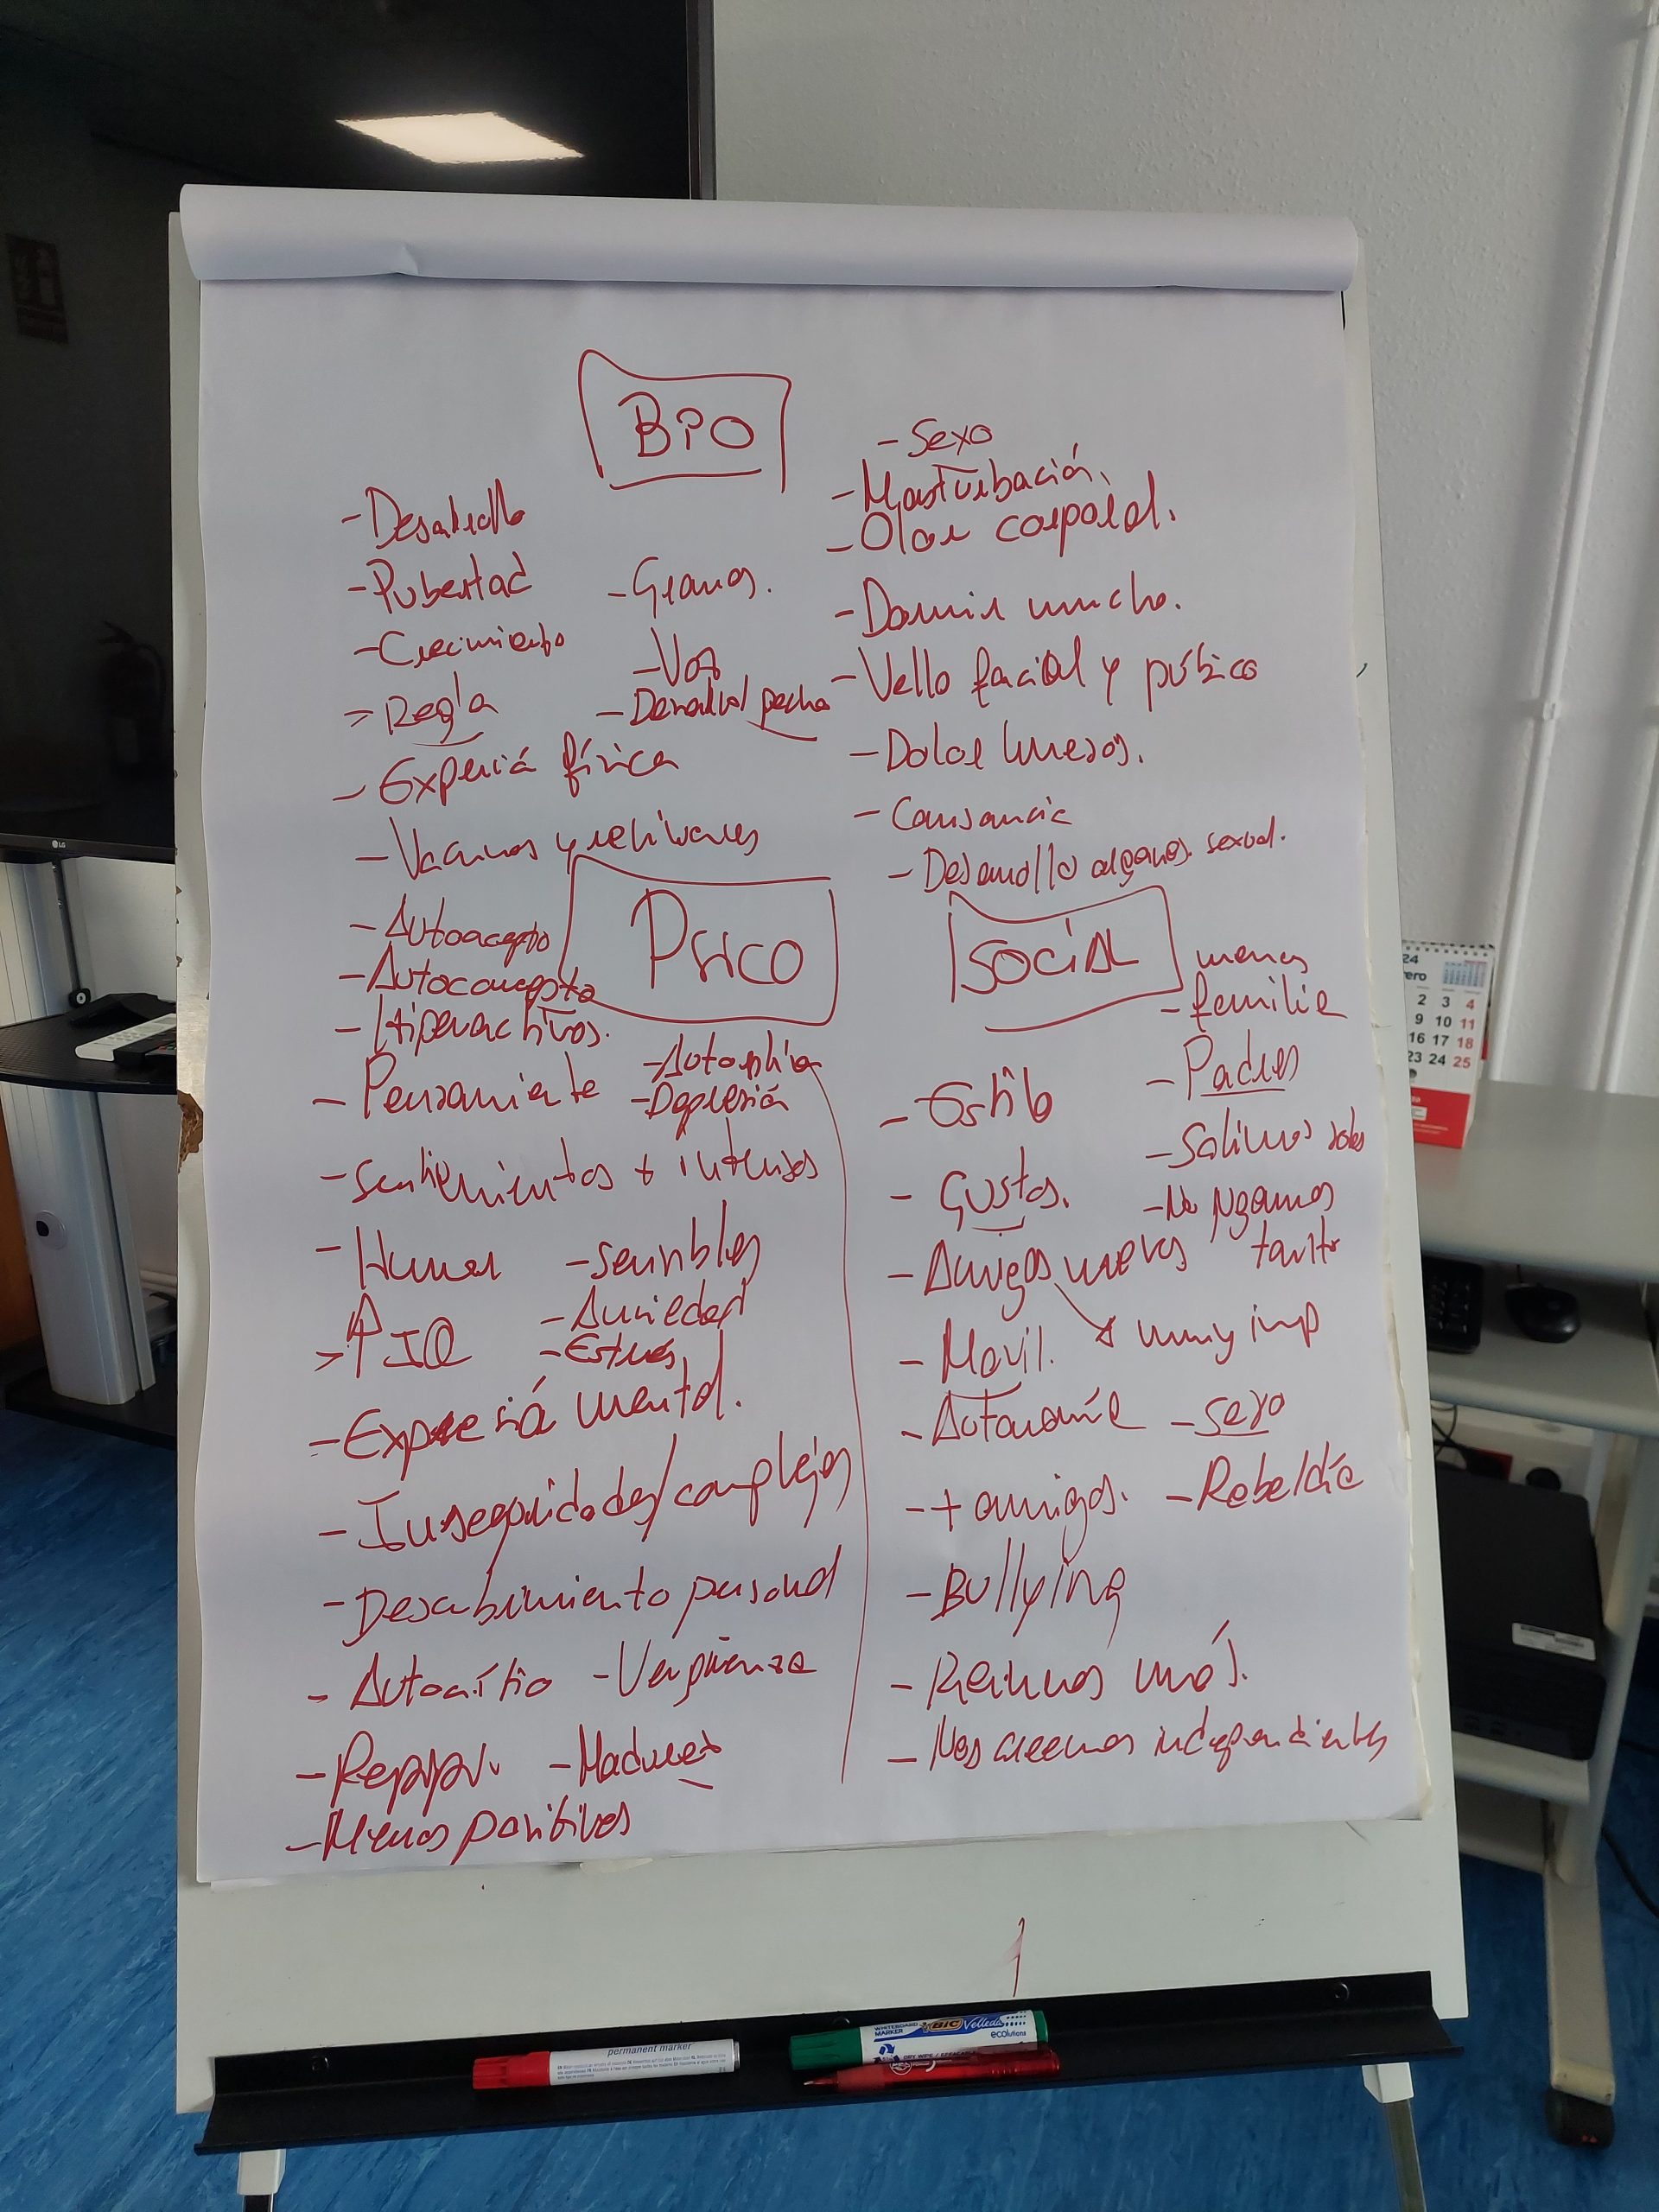 BIO
- Desarrollo
- Pubertad
- Crecimiento
- Regla
- Experiá física
- Vacunas y revisiones
- Granos.
- Voz
- Desarrollo pecho
- Sexo
- Masturbación.
- Olor corporal.
- Dormir mucho.
- Vello facial y púbico
- Dolor huesos.
- Cansancio
- Desarrollo órganos sexual.
PSICO
- Autoconcepto
- Hiperactivos.
- Pensamiento
- Autoestima
- Depresión
- Sentimientos + intensos
- Humor
- Sensibles
- ↑ IQ
- Ansiedad
- Estrés
- Experiá mental.
- Inseguridades/complejos
- Descubrimiento personal
- Autocrítico
- Vergüenza
- Madurez
- Menos positivos
SOCIAL
menos
- familia
- Padres
- Estilo
- Salimos solos
- Gustos.
- No jugamos
tanto
- Amigos nuevos
muy imp
- Movil.
- Autonomía
- Sexo
- + amigos.
- Rebeldía
- Bullying
- Reirnos más.
- Nos creemos independientes
LG
24
2 3 4
9 10 11
16 17 18
23 24 25
permanent marker
WHITEBOARD
MARKER
BIC Velleda
ecolutions